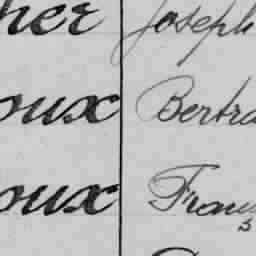 her Joseph
oux Bertra
oux Fran